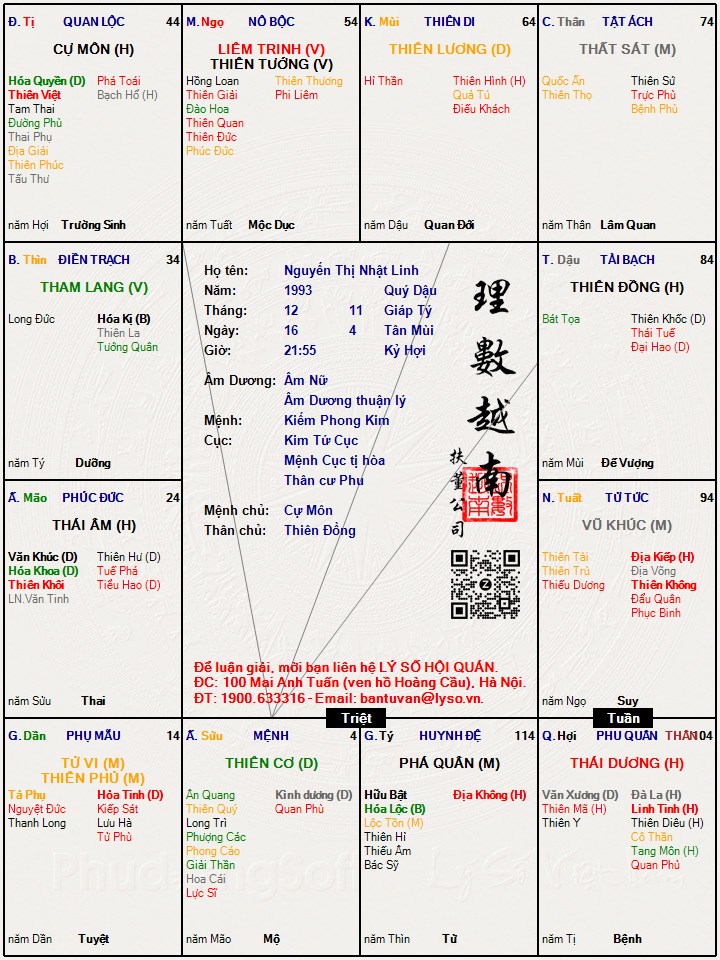 Đ. Tị QUAN LỘC 44
CỰ MÔN (H)
Hóa Quyền (D) Phá Toái
Thiên Việt Bạch Hổ (H)
Tam Thai
Đường Phù
Thai Phụ
Địa Giải
Thiên Phúc
Tấu Thư
năm Hợi Trường Sinh
M. Ngọ NÔ BỘC 54
LIÊM TRINH (V)
THIÊN TƯỚNG (V)
Hồng Loan Thiên Thương
Thiên Giải Phi Liêm
Đào Hoa
Thiên Quan
Thiên Đức
Phúc Đức
năm Tuất Mộc Dục
K. Mùi THIÊN DI 64
THIÊN LƯƠNG (D)
Hỉ Thần Thiên Hình (H)
Quả Tú
Điếu Khách
năm Dậu Quan Đới
C. Thân TẬT ÁCH 74
THẤT SÁT (M)
Quốc Ấn Thiên Sứ
Thiên Thọ Trực Phù
Bệnh Phù
năm Thân Lâm Quan
B. Thìn ĐIỀN TRẠCH 34
THAM LANG (V)
Long Đức Hóa Kị (B)
Thiên La
Tướng Quân
năm Tý Dưỡng
Họ tên: Nguyễn Thị Nhật Linh
Năm: 1993 Quý Dậu
Tháng: 12 11 Giáp Tý
Ngày: 16 4 Tân Mùi
Giờ: 21:55 Kỷ Hợi
Âm Dương: Âm Nữ
Âm Dương thuận lý
Mệnh: Kiếm Phong Kim
Cục: Kim Tứ Cục
Mệnh Cục tị hòa
Thân cư Phu
Mệnh chủ: Cự Môn
Thân chủ: Thiên Đồng
理數越南
扶董公司
Để luận giải, mời bạn liên hệ LÝ SỐ HỘI QUÁN.
ĐC: 100 Mai Anh Tuấn (ven hồ Hoàng Cầu), Hà Nội.
ĐT: 1900.633316 - Email: bantuvan@lyso.vn.
T. Dậu TÀI BẠCH 84
THIÊN ĐỒNG (H)
Bát Tọa Thiên Khốc (D)
Thái Tuế
Đại Hao (D)
năm Mùi Đế Vượng
Ấ. Mão PHÚC ĐỨC 24
THÁI ÂM (H)
Văn Khúc (D) Thiên Hư (D)
Hóa Khoa (D) Tuế Phá
Thiên Khôi Tiểu Hao (D)
LN.Văn Tinh
năm Sửu Thai
N. Tuất TỬ TỨC 94
VŨ KHÚC (M)
Thiên Tài Địa Kiếp (H)
Thiên Trù Địa Võng
Thiếu Dương Thiên Không
Đẩu Quân
Phục Binh
năm Ngọ Suy
Triệt
Tuần
G. Dần PHỤ MẪU 14
TỬ VI (M)
THIÊN PHỦ (M)
Tả Phụ Hỏa Tinh (D)
Nguyệt Đức Kiếp Sát
Thanh Long Lưu Hà
Tử Phù
năm Dần Tuyệt
Ấ. Sửu MỆNH 4
THIÊN CƠ (D)
Ân Quang Kình dương (D)
Thiên Quý Quan Phù
Long Trì
Phượng Các
Phong Cáo
Giải Thần
Hoa Cái
Lực Sĩ
năm Mão Mộ
G. Tý HUYNH ĐỆ 114
PHÁ QUÂN (M)
Hữu Bật Địa Không (H)
Hóa Lộc (B)
Lộc Tồn (M)
Thiên Hỉ
Thiếu Âm
Bác Sỹ
năm Thìn Tử
Q. Hợi PHU QUÂN THÂN 104
THÁI DƯƠNG (H)
Văn Xương (D) Đà La (H)
Thiên Mã (H) Linh Tinh (H)
Thiên Y Thiên Diêu (H)
Cô Thần
Tang Môn (H)
Quan Phủ
năm Tị Bệnh